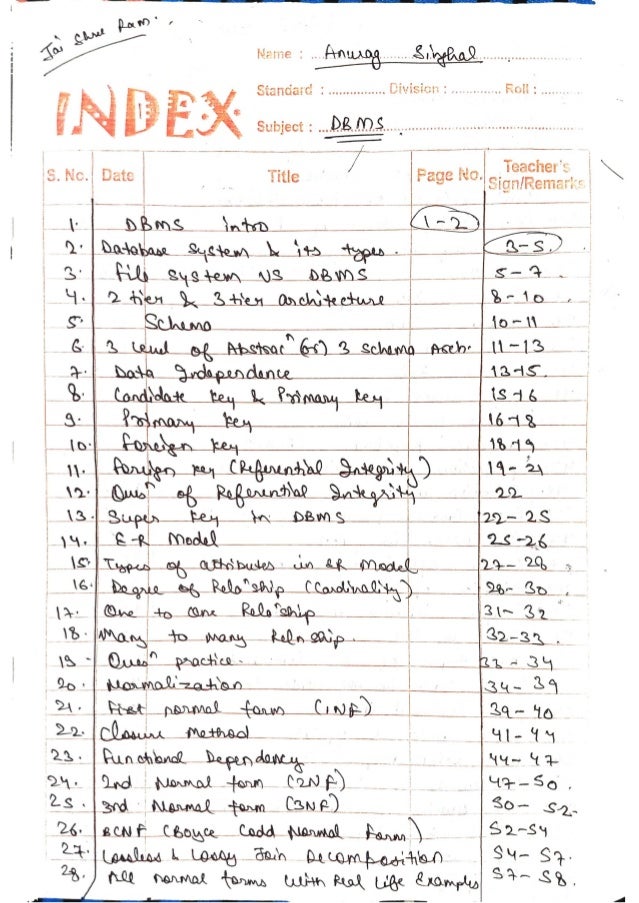 Jai Shree Ram.
Name : Anurag Singhal
Standard : Division : Roll :
INDEX
Subject : DBMS
S. No. Date Title Page No. Teacher's Sign/Remarks
1. DBMS intro 1-2
2. Database System & its types. 3-5
3. file system VS DBMS 5-7
4. 2 tier & 3 tier architecture 8-10
5. Schema 10-11
6. 3 level of Abstracⁿ (or) 3 Schema Arch. 11-13
7. Data Independence 13-15
8. Candidate key & Primary key 15-16
9. Primary key 16-18
10. foreign key 18-19
11. foreign key (Referential Integrity) 19-21
12. Quesⁿ of Referential Integrity 22
13. Super key in DBMS 22-25
14. E-R Model 25-26
15. Types of attributes in ER Model 27-28
16. Degree of Relaⁿship (Cardinality) 28-30
17. One to One Relaⁿship 31-32
18. Many to many Relnship. 32-33
19. Quesⁿ practice. 33-34
20. Normalization 34-39
21. First normal form (1NF) 39-40
22. Closure method 41-44
23. Functional Dependency 44-47
24. 2nd Normal form (2NF) 47-50.
25. 3rd Normal form (3NF) 50-52.
26. BCNF (Boyce Codd Normal form) 52-54
27. Lossless & Lossy Join Decomposition 54-57.
28. All normal forms with Real Life Examples 57-58.